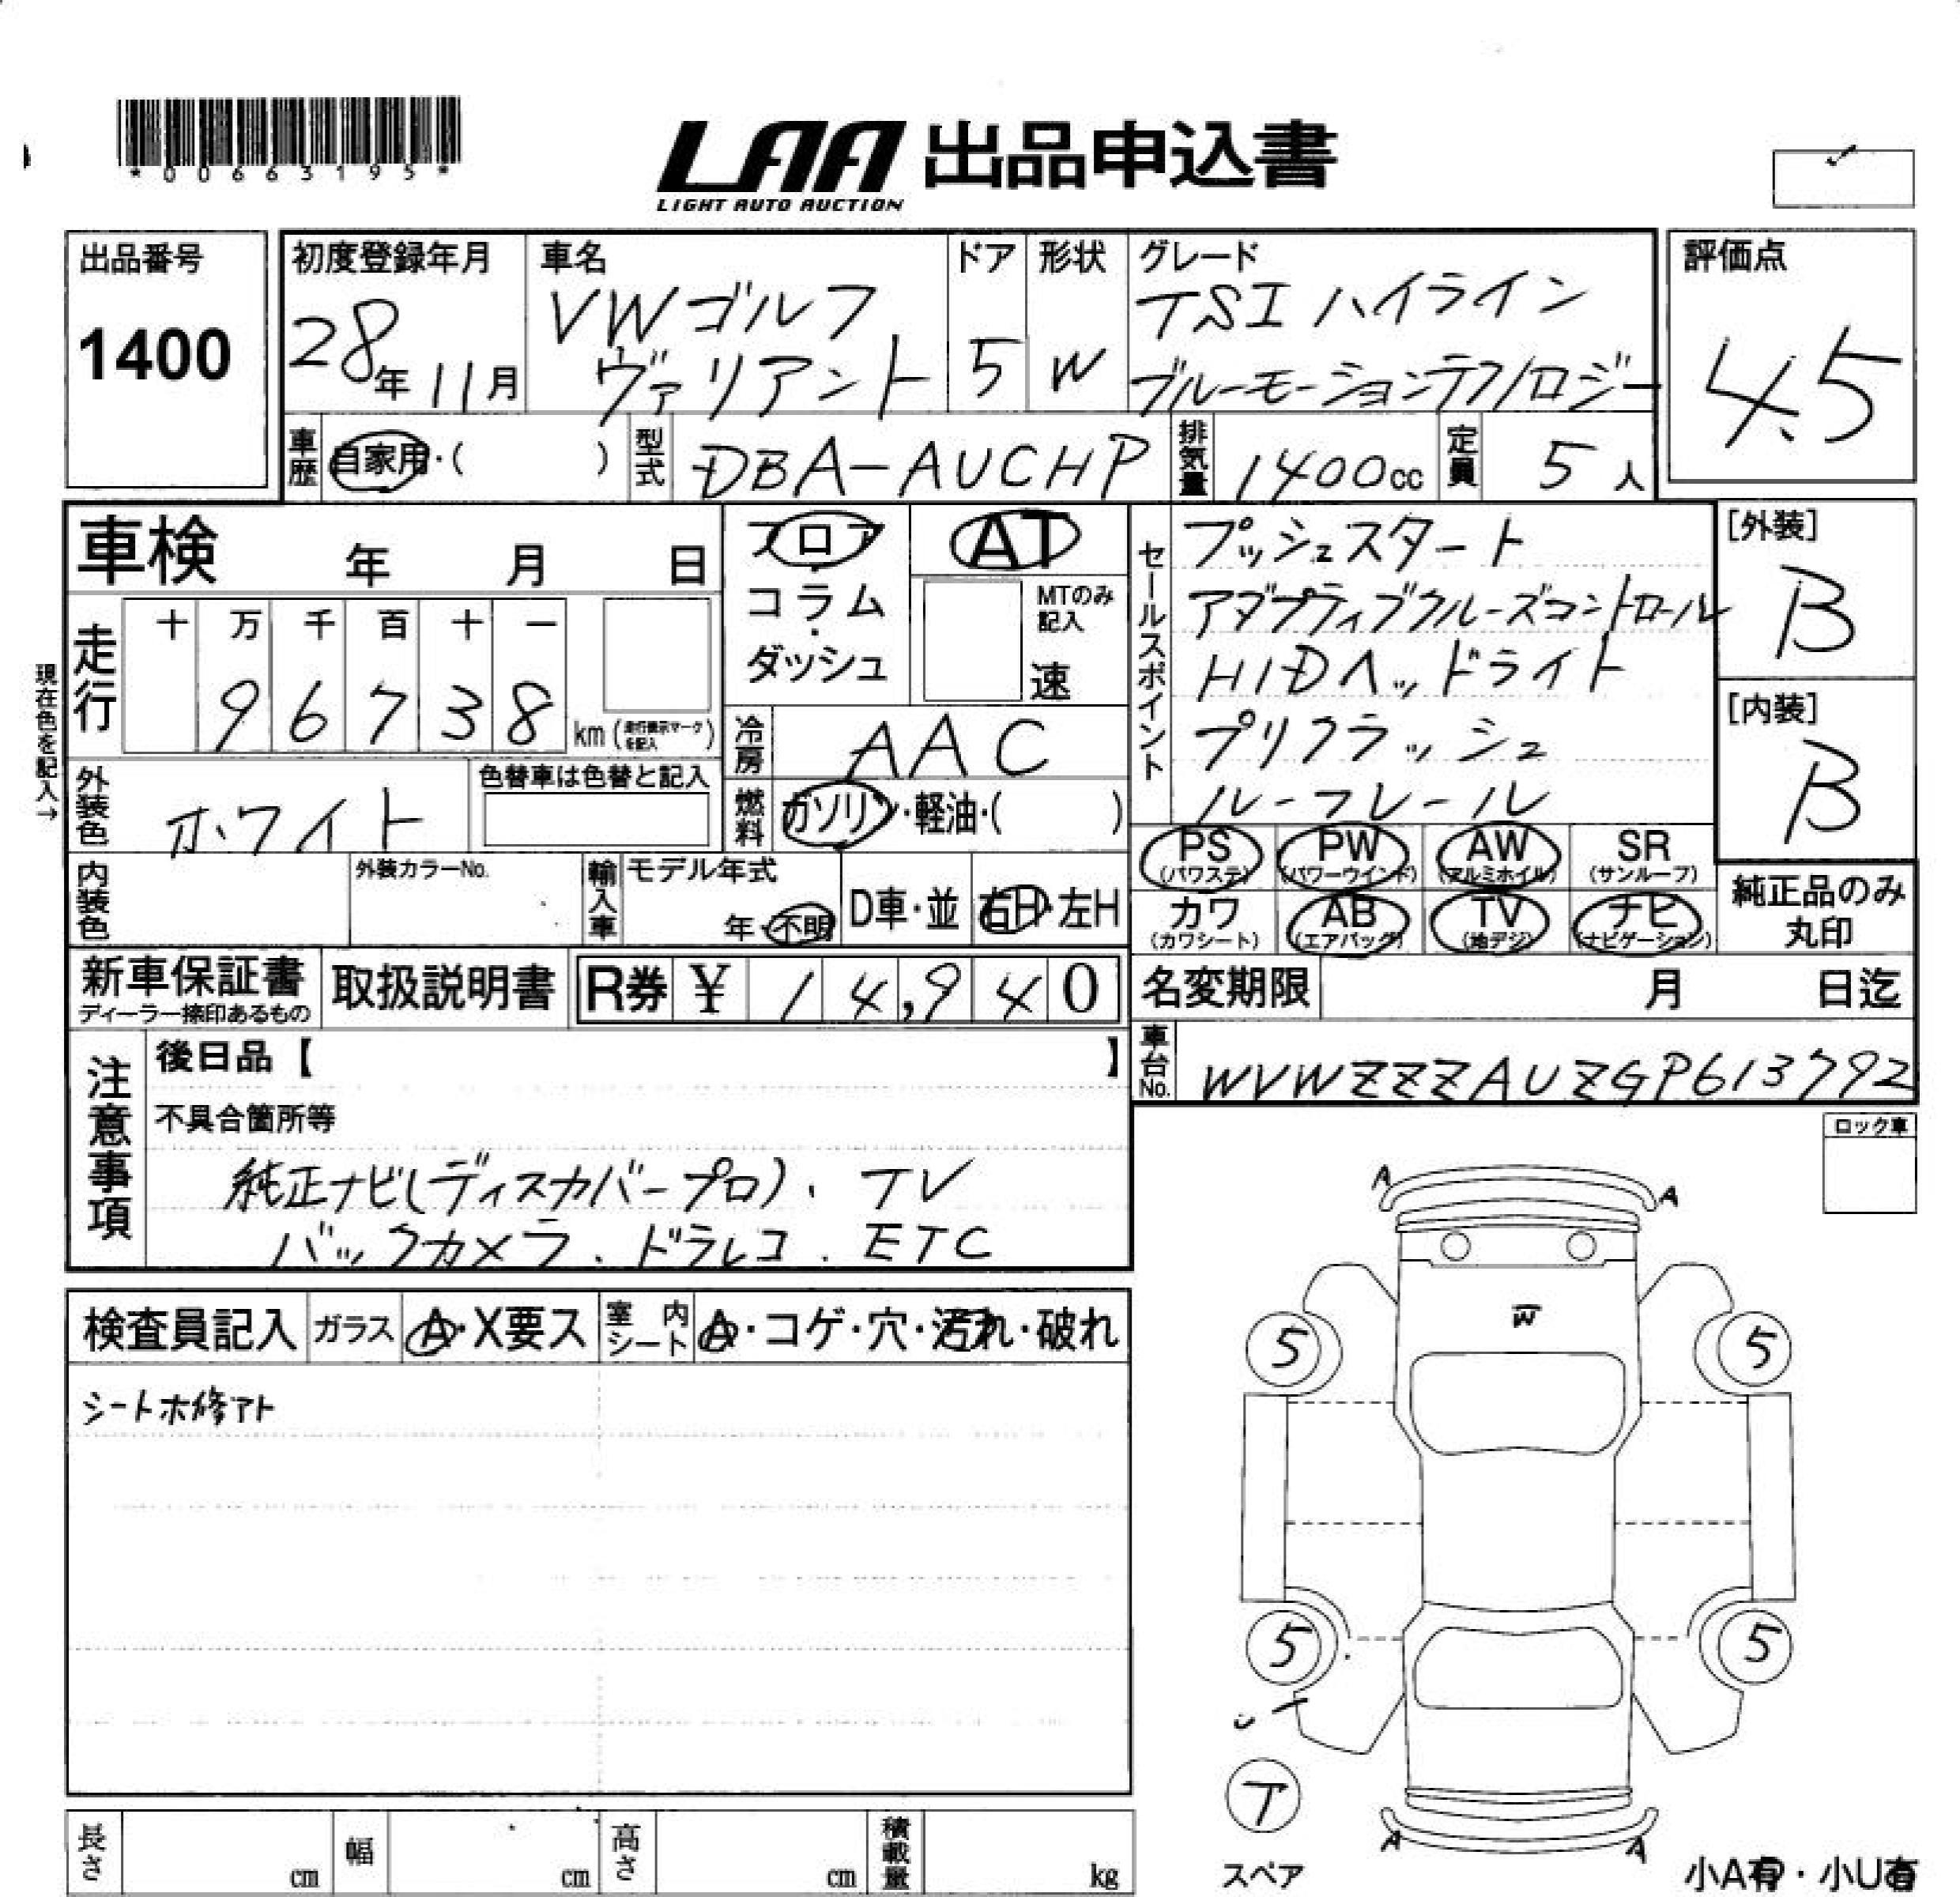 *00663195*
LAA 出品申込書
LIGHT AUTO AUCTION
出品番号
1400
初度登録年月
28年11月
車名
VWゴルフ
ヴァリアント
ドア
5
形状
W
グレード
TSI ハイライン
ブルーモーションテクノロジー
評価点
4.5
車歴
自家用・( )
型式
DBA-AUCHP
排気量
1400cc
定員
5人
車検 年 月 日
フロア
・
コラム
・
ダッシュ
AT
MTのみ
記入
速
セールスポイント
プッシュスタート
アダプティブクルーズコントロール
HIDヘッドライト
プリクラッシュ
ルーフレール
[外装]
B
[内装]
B
現在色を記入→
走行
十 万 千 百 十 一
9 6 7 3 8
km(走行表示マークを記入)
冷房
AAC
外装色
ホワイト
色替車は色替と記入
燃料
ガソリン・軽油・( )
PS
(パワステ)
PW
(パワーウインド)
AW
(アルミホイル)
SR
(サンルーフ)
カワ
(カワシート)
AB
(エアバッグ)
TV
(地デジ)
ナビ
(ナビゲーション)
純正品のみ
丸印
内装色
外装カラーNo.
輸入車
モデル年式
年・不明
D車・並
右H・左H
新車保証書
ディーラー捺印あるもの
取扱説明書
R券 ¥ 14,940
名変期限 月 日迄
車台No.
WVWZZZAUZGP613792
注意事項
後日品【 】
不具合箇所等
純正ナビ(ディスカバープロ)、TV
バックカメラ、ドラレコ、ETC
ロック車
検査員記入
ガラス
A・X要ス
室内
シート
A・コゲ・穴・汚れ・破れ
シートホ修アト
A
A
W
5
5
5
5
T
スペア
A
A
小A有・小U有
長さ cm
幅 cm
高さ cm
積載量 kg